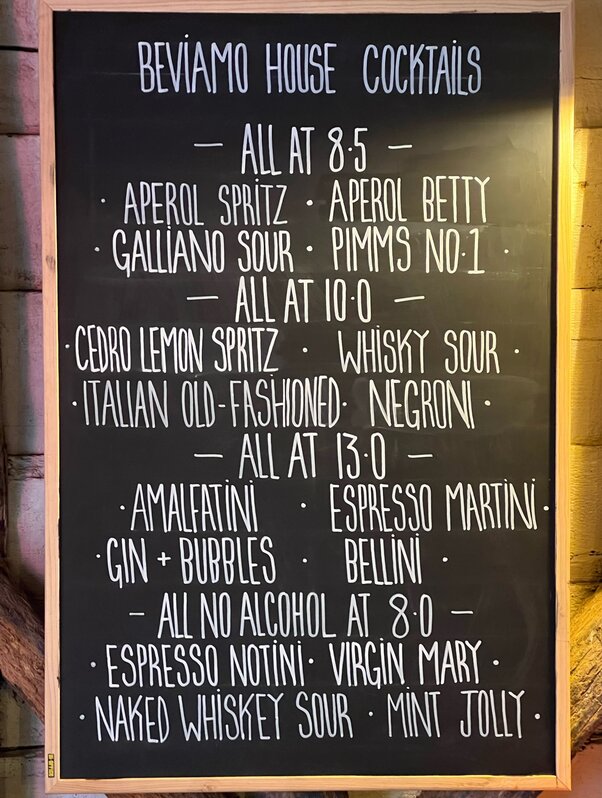 BEVIAMO HOUSE COCKTAILS
— ALL AT 8·5 —
· APEROL SPRITZ · APEROL BETTY
· GALLIANO SOUR · PIMMS NO·1 ·
— ALL AT 10·0 —
· CEDRO LEMON SPRITZ · WHISKY SOUR ·
· ITALIAN OLD-FASHIONED · NEGRONI ·
— ALL AT 13·0 —
· AMALFATINI · ESPRESSO MARTINI ·
· GIN + BUBBLES · BELLINI ·
— ALL NO ALCOHOL AT 8·0 —
· ESPRESSO NOTINI · VIRGIN MARY ·
· NAKED WHISKEY SOUR · MINT JOLLY ·